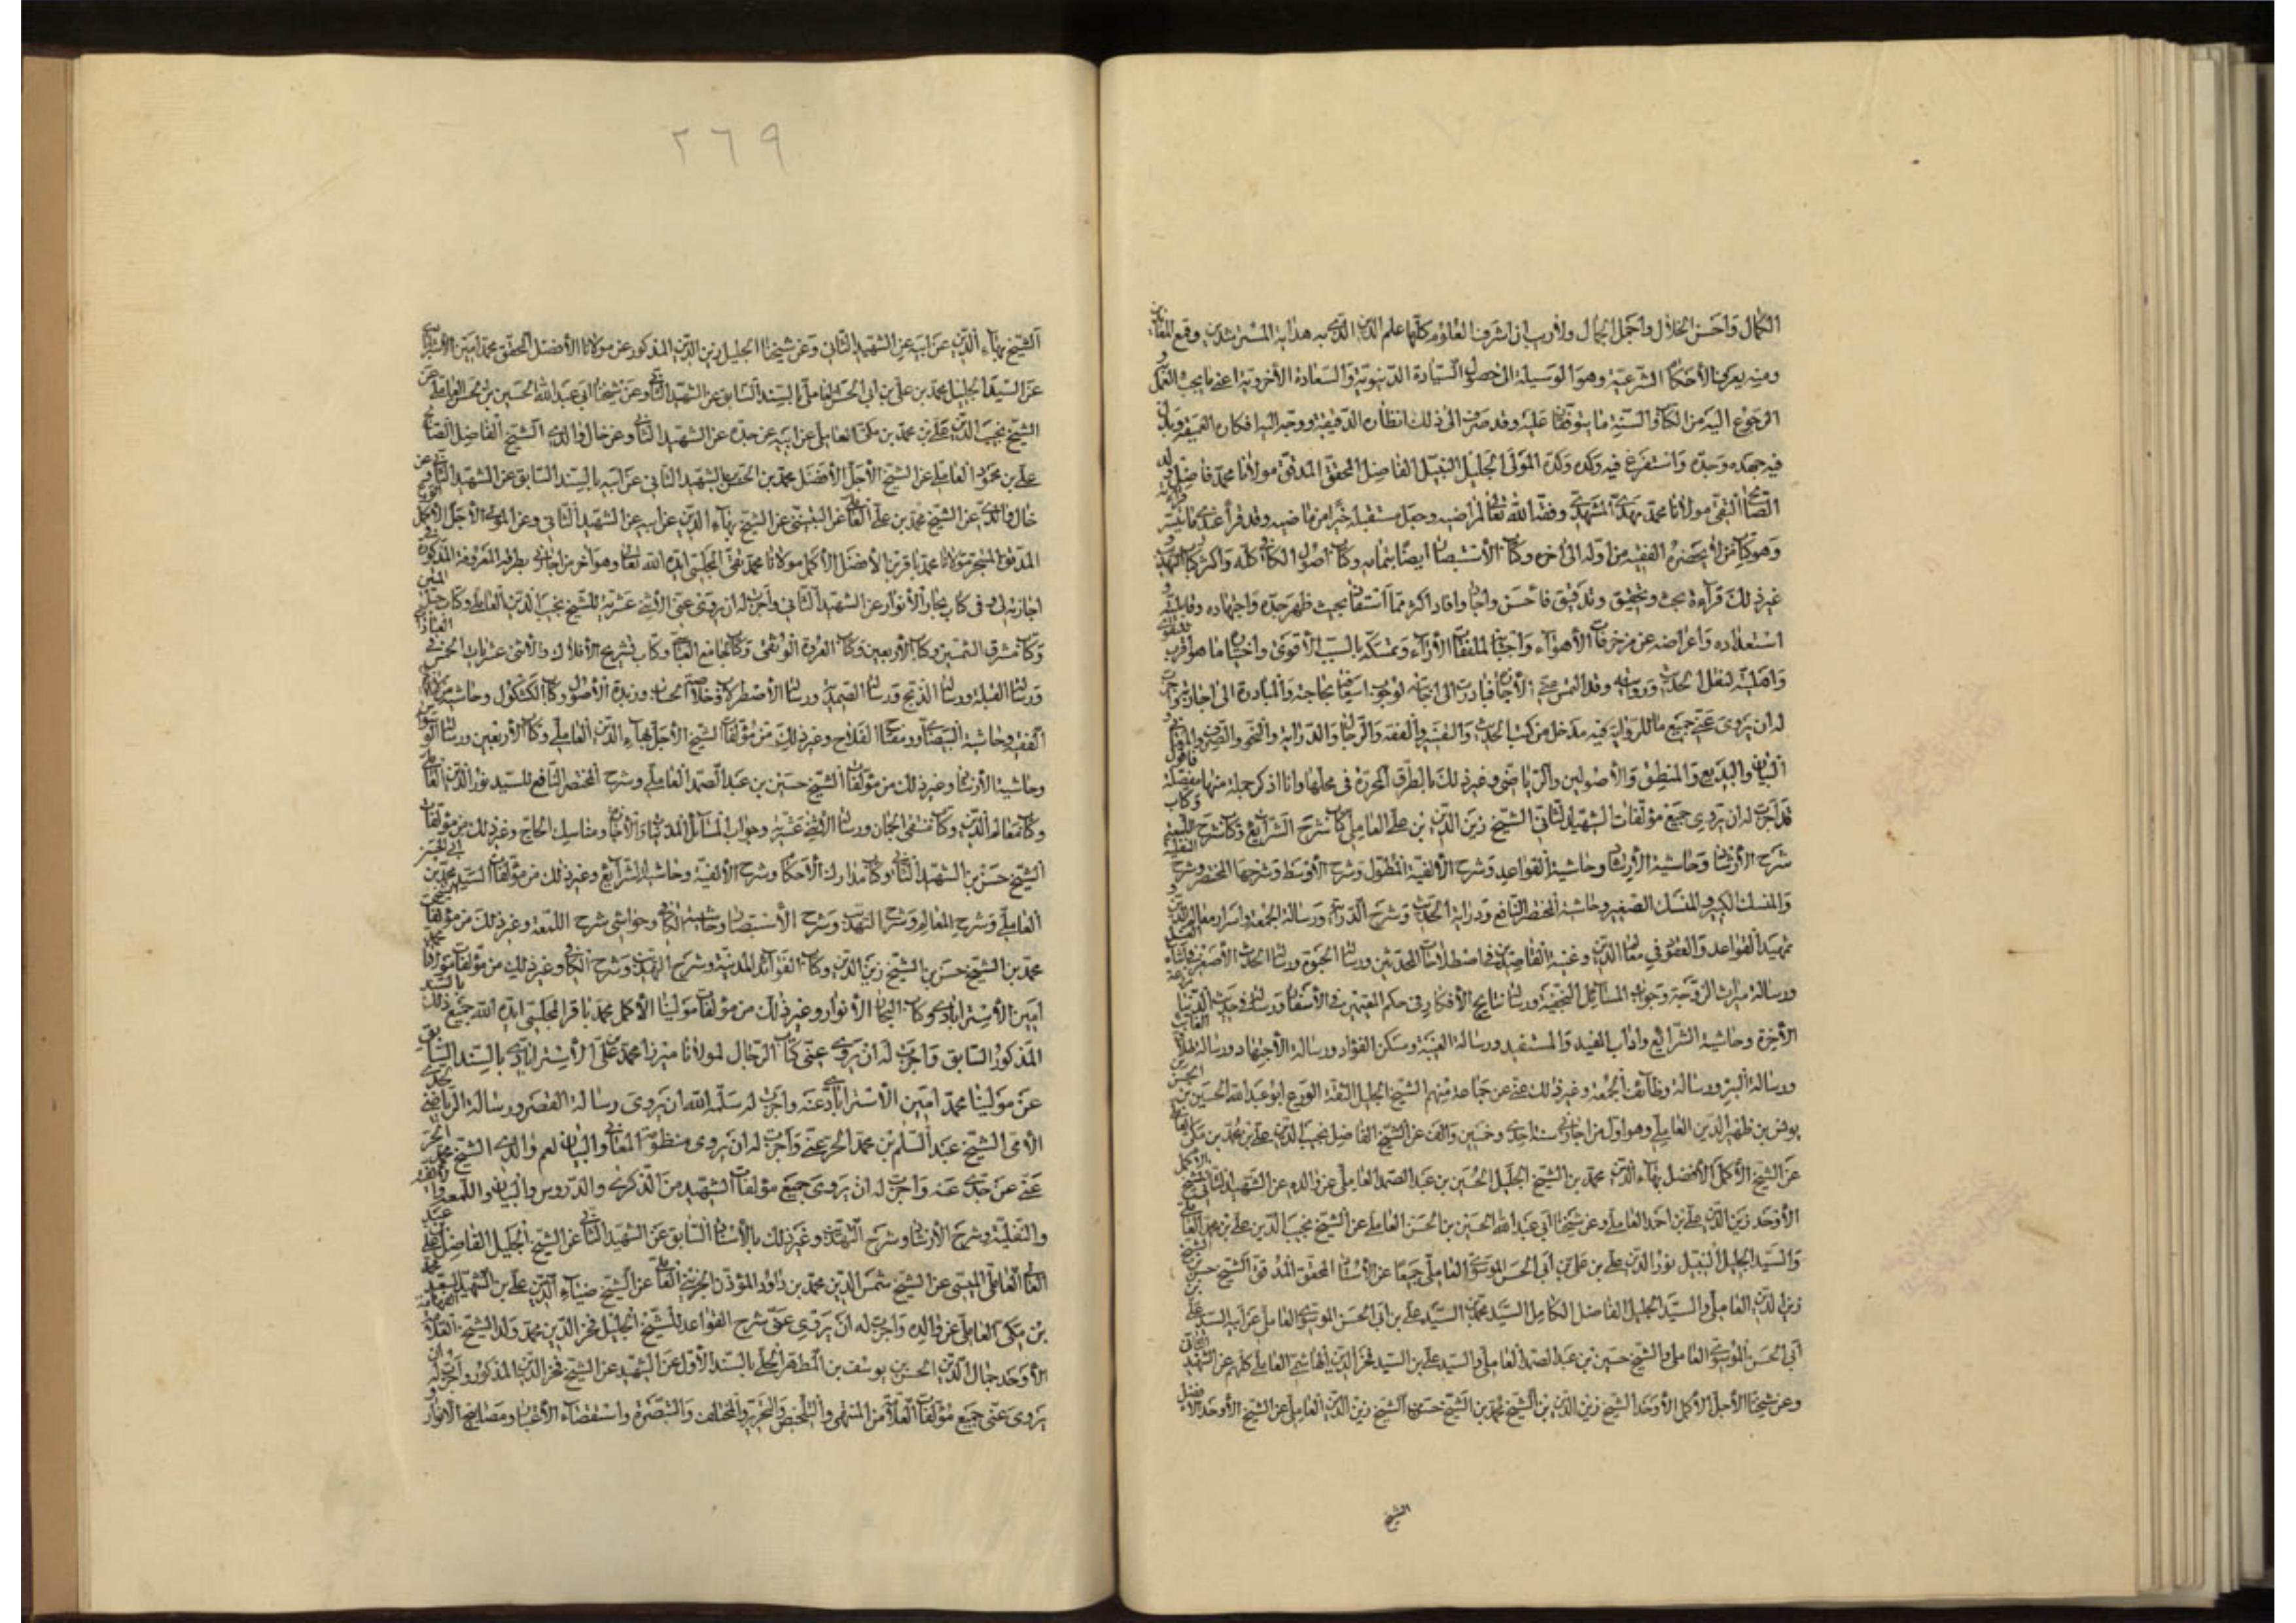 الكمال واحسن الخلال واجمل الجمال ولا ريب ان اشرف العلوم كلها علم الدين الذي به هداية المسترشدين وقمع المعاندين
ومنه يعرف الأحكام الشرعية وهو الوسيلة الى حصول السيادة الدنيوية والسعادة الأخروية اعني ما يجب العمل و
الرجوع اليه من الكتاب والسنة وما يتوقفان عليه وقد صرف الى ذلك انظاره الدقيقة ووجه اليه افكاره العميقة وبذل
فيه جهده وجده واستفرغ فيه وكده وكده المولى الجليل النبيل الفاضل المحقق المدقق مولانا محمد فاضل بن
الصالح التقي مولانا محمد مهدي المشهدي وفقه الله تعالى لمراضيه وجعل مستقبله خيرا من ماضيه وقد قرأ عندي ما تيسر قرائته
وهو كتاب من لا يحضره الفقيه من اوله الى اخره وكتاب الأستبصار ايضا بتمامه وكتاب اصول الكافي كله واكثر كتاب التهذيب و
غير ذلك قراءة بحث وتحقيق وتدقيق فأحسن واجاد وافاد اكثر مما استفاد بحيث ظهر جده واجتهاده وقابليته و
استعداده واعراضه عن مزخرفات الأهواء واجتنابه لملفقات الأراء وتمسكه بالسبب الأقوى واختياره ما هو اقرب للتقوى
واهليته لنقل الحديث وروايته وقد التمس مني الأجازة فبادرت الى اجابته لوجوب اسعافه بحاجته والمبادرة الى اجازته فأجزت
له ان يروي عني جميع ما للرواية فيه مدخل من كتب الحديث والتفسير والفقه والرجال والدراية والنحو والصرف والمعاني و
البيان والبديع والمنطق والأصولين والرياضي وغير ذلك بالطرق المحررة في محلها وانا اذكر جملة منها مفصلة فأقول
قد اجزت له ان يروي جميع مؤلفات الشهيد الثاني الشيخ زين الدين بن علي العاملي كتاب شرح الشرايع وكتاب شرح اللمعة وكتاب
شرح الأرشاد وحاشية الأرشاد وحاشية القواعد وشرح الألفية المطول وشرح الأوسط وشرحها المختصر وشرح النفلية
والمنسك الكبير والمنسك الصغير وحاشية المختصر النافع ودراية الحديث وشرح الدراية ورسالة الجمعة واسرار معالم الدين و
تمهيد القواعد والعقود في معالم الدين وغنية القاصدين في اصطلاحات المحدثين ورسالة الحبوة ورسالة الحدث الأصغر في اثناء الغسل
ورسالة ميراث الزوجة وجواب المسائل النجفية ورسالة نتايج الأفكار في حكم المقيمين في الأسفار ورسالة في حديث الدنيا مزرعة
الأخرة وحاشية الشرايع واداب المفيد والمستفيد ورسالة الغيبة ومسكن الفؤاد ورسالة الأجتهاد ورسالة طلاق الغايب
ورسالة البئر ورسالة وظائف الجمعة وغير ذلك عني عن جماعة منهم الشيخ الجليل الثقة الورع ابو عبد الله الحسين بن الحسن بن
يونس بن ظهير الدين العاملي وهو اول من اجازني سنة احدى وخمسين والف عن الشيخ الفاضل نجيب الدين علي بن محمد بن مكي العاملي
عن الشيخ الأكمل الأفضل بهاء الدين محمد بن الشيخ الجليل الحسين بن عبد الصمد العاملي عن والده عن الشهيد الثاني الشيخ الأكمل
الأوحد زين الدين علي بن احمد العاملي وعن شيخنا ابي عبد الله الحسين بن الحسن العاملي عن الشيخ نجيب الدين علي بن محمد العاملي
والسيد الجليل النبيل نور الدين علي بن علي بن ابي الحسن الموسوي العاملي جميعا عن الأستاد المحقق المدقق الشيخ حسن بن الشيخ
زين الدين العاملي والسيد الجليل الفاضل الكامل السيد محمد بن السيد علي بن ابي الحسن الموسوي العاملي عن ابيه السيد علي بن
أبي الحسن الموسوي العاملي والشيخ حسين بن عبد الصمد العاملي والسيد علي بن السيد فخر الدين الهاشمي العاملي كلهم عن الشهيد الثاني
وعن شيخنا الأجل الأكمل الأوحد الشيخ زين الدين بن الشيخ محمد بن الشيخ حسن بن الشيخ زين الدين العاملي عن الشيخ الأوحد الأفضل
الشيخ
٢٦٩
الشيخ بهاء الدين عن ابيه عن الشهيد الثاني وعن شيخنا الجليل زين الدين المذكور عن مولانا الأفضل المحقق محمد امين الأسترابادي
عن السيد الجليل محمد بن علي بن ابي الحسن العاملي بالسند السابق عن الشهيد الثاني وعن شيخنا ابي عبد الله الحسين بن الحسن العاملي عن
الشيخ نجيب الدين علي بن محمد بن مكي العاملي عن ابيه عن جده عن الشهيد الثاني وعن خال والدي الشيخ الفاضل الصالح
علي بن محمود العاملي عن الشيخ الأجل الأفضل محمد بن الحسن بن الشهيد الثاني عن ابيه بالسند السابق عن الشهيد الثاني وعن
خال والدي عن الشيخ محمد بن علي العاملي التبنيني عن الشيخ بهاء الدين عن ابيه عن الشهيد الثاني وعن المولى الأجل الأكمل الورع
المدقق المتبحر مولانا محمد باقر بن الأفضل الأكمل مولانا محمد تقي المجلسي ايده الله تعالى وهو اخر من اجازني بطرقه المعروفة المذكورة في
اجازته لي وفي كتاب بحار الأنوار عن الشهيد الثاني واجزت له ان يروي عني الأثني عشرية للشيخ نجيب الدين العاملي وكتاب حبل المتين
وكتاب مشرق الشمسين وكتاب الأربعين وكتاب العروة الوثقى وكتاب الجامع العباسي وكتاب تشريح الأفلاك والأثنى عشريات الخمس في العبادات
ورسالة القبلة ورسالة الذبايح ورسالة الصمدية ورسالة الأصطرلاب وخلاصة الحساب وزبدة الأصول وكتاب الكشكول وحاشية
الفقيه وحاشية البيضاوي ومفتاح الفلاح وغير ذلك من مؤلفات الشيخ الأجل بهاء الدين العاملي وكتاب الأربعين ورسالة
وحاشية الأرشاد وغير ذلك من مؤلفات الشيخ حسين بن عبد الصمد العاملي وشرح المختصر النافع للسيد نور الدين العاملي
وكتاب معالم الدين وكتاب منتقى الجمان ورسالة الأثني عشرية وجواب المسائل المدنيات والأجازة ومناسك الحاج وغير ذلك من مؤلفات
الشيخ حسن بن الشهيد الثاني وكتاب مدارك الأحكام وشرح الألفية وحاشية الشرايع وغير ذلك من مؤلفات السيد محمد بن ابي الحسن
العاملي وشرح المعالم وشرح التهذيب وشرح الأستبصار وحاشية الكافي وحواشي شرح اللمعة وغير ذلك من مؤلفات الشيخ
محمد بن الشيخ حسن بن الشيخ زين الدين وكتاب الفوائد المدنية وشرح التهذيب وشرح الكافي وغير ذلك من مؤلفات مولانا محمد
امين الأسترابادي وكتاب البحار الأنوار وغير ذلك من مؤلفات مولينا الأكمل محمد باقر المجلسي ايده الله جميع ذلك بالسند
المذكور السابق واجزت له ان يروي عني كتاب الرجال لمولانا ميرزا محمد بن علي الأسترابادي بالسند السابق
عن مولينا محمد امين الأسترابادي عنه واجزت له سلمه الله ان يروي رسالة القصر ورسالة الرياضي لجدي
الأمي الشيخ عبد السلم بن محمد الحر عني واجزت له ان يروي منظومة المعاني والبيان لعم والدي الشيخ محمد الحر
عني عن جدي عنه واجزت له ان يروي جميع مؤلفات الشهيد من الذكرى والدروس والبيان واللمعة والألفية
والنفلية وشرح الأرشاد وشرح التهذيب وغير ذلك بالأسناد السابق عن الشهيد الثاني عن الشيخ الجليل الفاضل علي بن عبد
العالي العاملي الميسي عن الشيخ شمس الدين محمد بن داود المؤذن الجزيني العاملي عن الشيخ ضياء الدين علي بن الشهيد السعيد محمد
بن مكي العاملي عن والده واجزت له ان يروي عني شرح القواعد للشيخ الجليل فخر الدين محمد ولد الشيخ العلامة
الأوحد جمال الدين الحسن بن يوسف بن المطهر الحلي بالسند الأول عن الشهيد عن الشيخ فخر الدين المذكور واجزت له ان
يروي عني جميع مؤلفات العلامة من المنتهى والتلخيص والتحرير والمختلف والتبصرة واستقصاء الأعتبار ومصابيح الأنوار